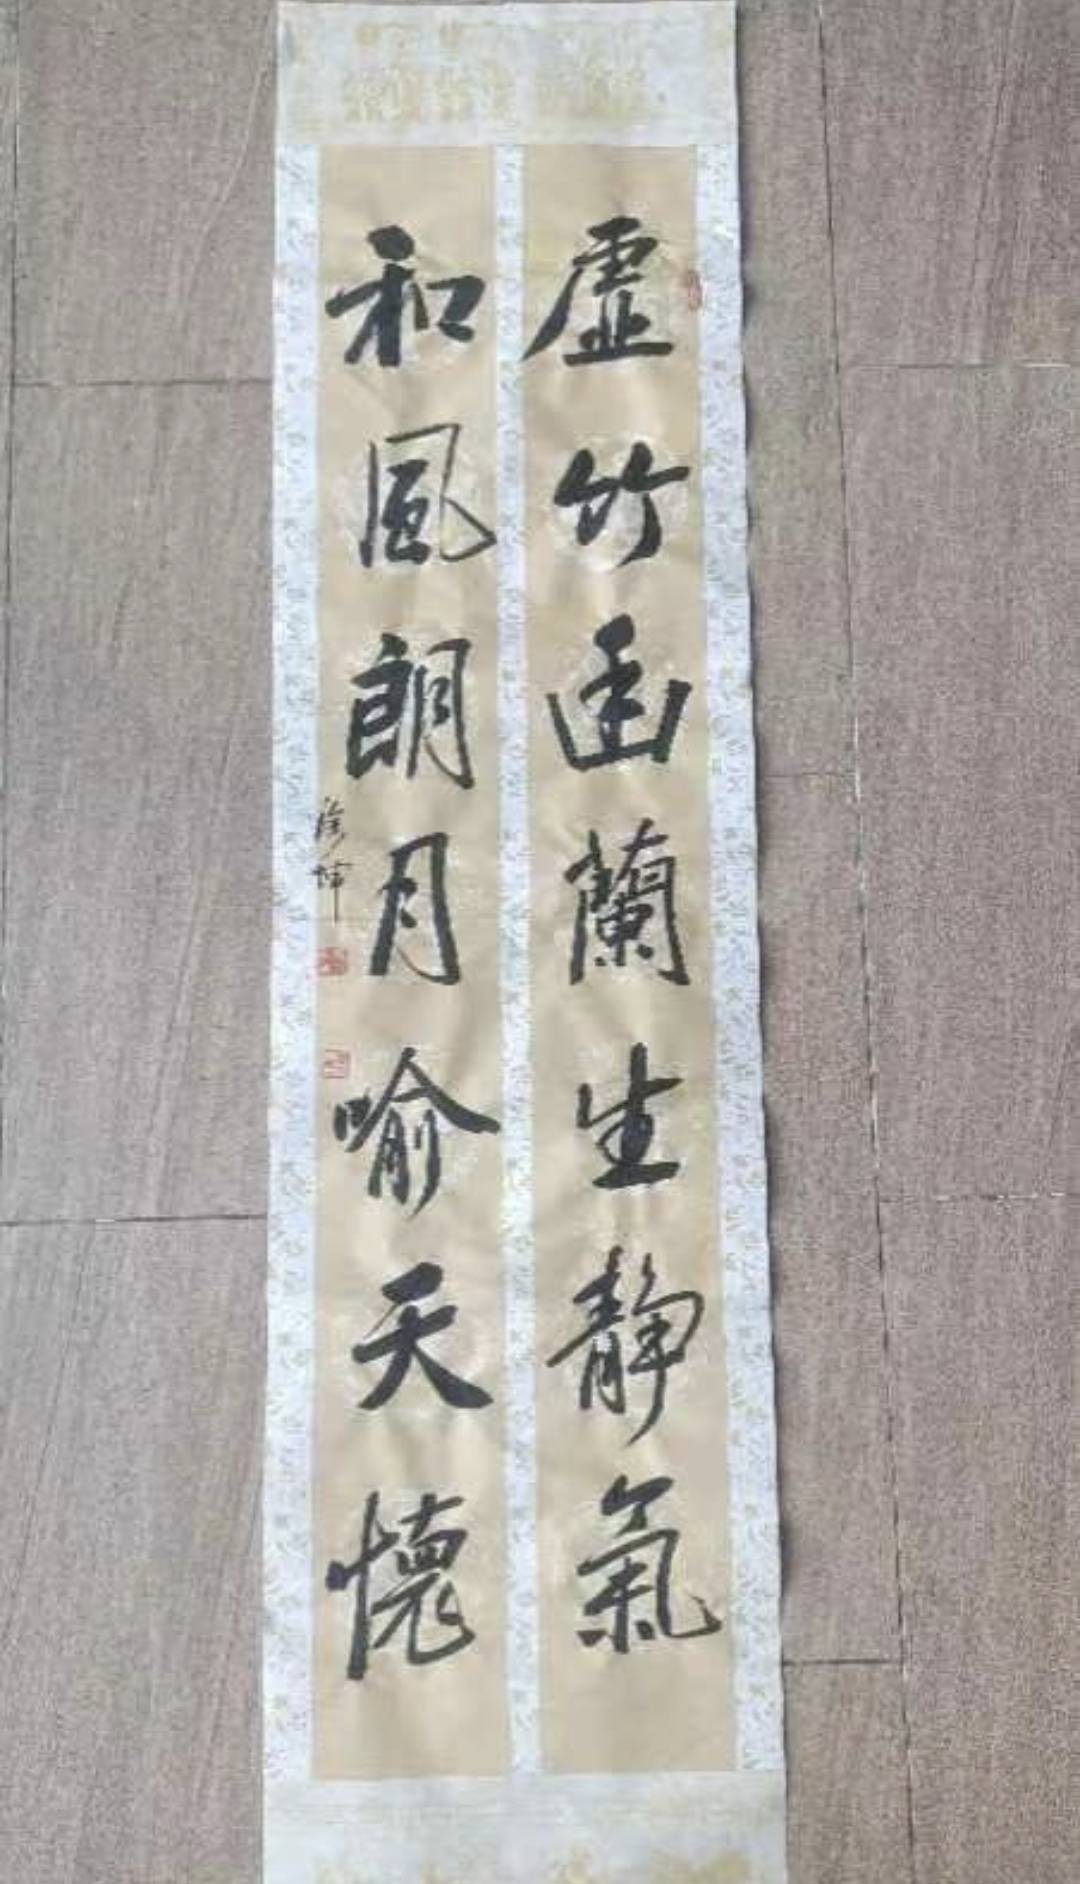 虛竹幽蘭生靜氣
和風朗月喻天懷